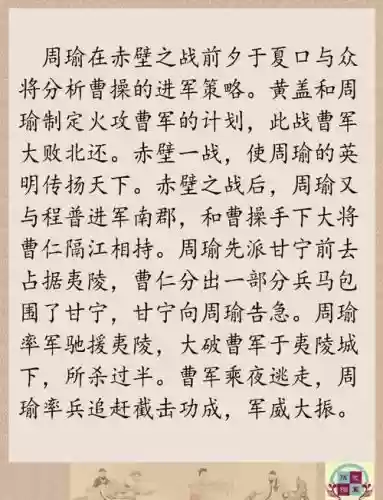 周瑜在赤壁之战前夕于夏口与众
将分析曹操的进军策略。黄盖和周
瑜制定火攻曹军的计划，此战曹军
大败北还。赤壁一战，使周瑜的英
明传扬天下。赤壁之战后，周瑜又
与程普进军南郡，和曹操手下大将
曹仁隔江相持。周瑜先派甘宁前去
占据夷陵，曹仁分出一部分兵马包
围了甘宁，甘宁向周瑜告急。周瑜
率军驰援夷陵，大破曹军于夷陵城
下，所杀过半。曹军乘夜逃走，周
瑜率兵追赶截击功成，军威大振。